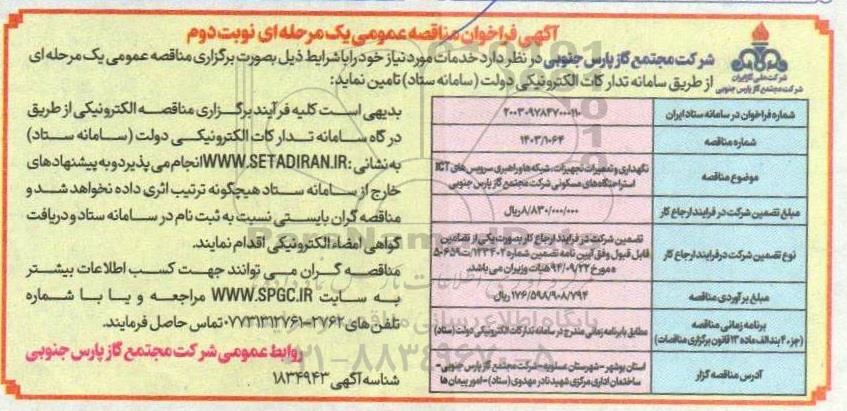 آگهی فراخوان مناقصه عمومی یک مرحله ای نوبت دوم
شرکت ملی گاز ایران
شرکت مجتمع گاز پارس جنوبی
شرکت مجتمع گاز پارس جنوبی در نظر دارد خدمات مورد نیاز خود را با شرایط ذیل بصورت برگزاری مناقصه عمومی یک مرحله ای
از طریق سامانه تدارکات الکترونیکی دولت (سامانه ستاد) تامین نماید:
شماره فراخوان در سامانه ستاد ایران
۲۰۰۳۰۹۷۸۴۷۰۰۰۱۱۰
شماره مناقصه
۱۴۰۳/۱۰۶۴
موضوع مناقصه
نگهداری و تعمیرات تجهیزات، شبکه ها و راهبری سرویس های ICT
استراحتگاه های مسکونی شرکت مجتمع گاز پارس جنوبی
مبلغ تضمین شرکت در فرایند ارجاع کار
۸/۸۳۰/۰۰۰/۰۰۰ ریال
نوع تضمین شرکت در فرایند ارجاع کار
تضمین شرکت در فرایند ارجاع کار بصورت یکی از تضامین
قابل قبول وفق آیین نامه تضمین شماره ۱۲۳۴۰۲/ت۵۰۶۵۹
ه مورخ ۹۴/۰۹/۲۲ هیات وزیران می باشد.
مبلغ برآوردی مناقصه
۱۷۶/۵۹۸/۹۰۸/۷۹۴ ریال
برنامه زمانی مناقصه
(جزء ۴ بند الف ماده ۱۳ قانون برگزاری مناقصات)
مطابق با برنامه زمانی مندرج در سامانه تدارکات الکترونیکی دولت (ستاد)
آدرس مناقصه گزار
استان بوشهر - شهرستان عسلویه - شرکت مجتمع گاز پارس جنوبی -
ساختمان اداری مرکزی شهید نادر مهدوی (ستاد) - امور پیمان ها
بدیهی است کلیه فرآیند برگزاری مناقصه الکترونیکی از طریق
درگاه سامانه تدارکات الکترونیکی دولت (سامانه ستاد)
به نشانی: WWW.SETADIRAN.IR انجام می پذیرد و به پیشنهادهای
خارج از سامانه ستاد هیچگونه ترتیب اثری داده نخواهد شد و
مناقصه گران بایستی نسبت به ثبت نام در سامانه ستاد و دریافت
گواهی امضاء الکترونیکی اقدام نمایند.
مناقصه گران می توانند جهت کسب اطلاعات بیشتر
به سایت WWW.SPGC.IR مراجعه و یا با شماره
تلفن های ۲۷۶۲-۰۷۷۳۱۳۱۲۷۶۱ تماس حاصل فرمایند.
روابط عمومی شرکت مجتمع گاز پارس جنوبی
شناسه آگهی ۱۸۳۴۹۴۳
۰۲۱-۸۸۳۴۹۶۷۰-۵